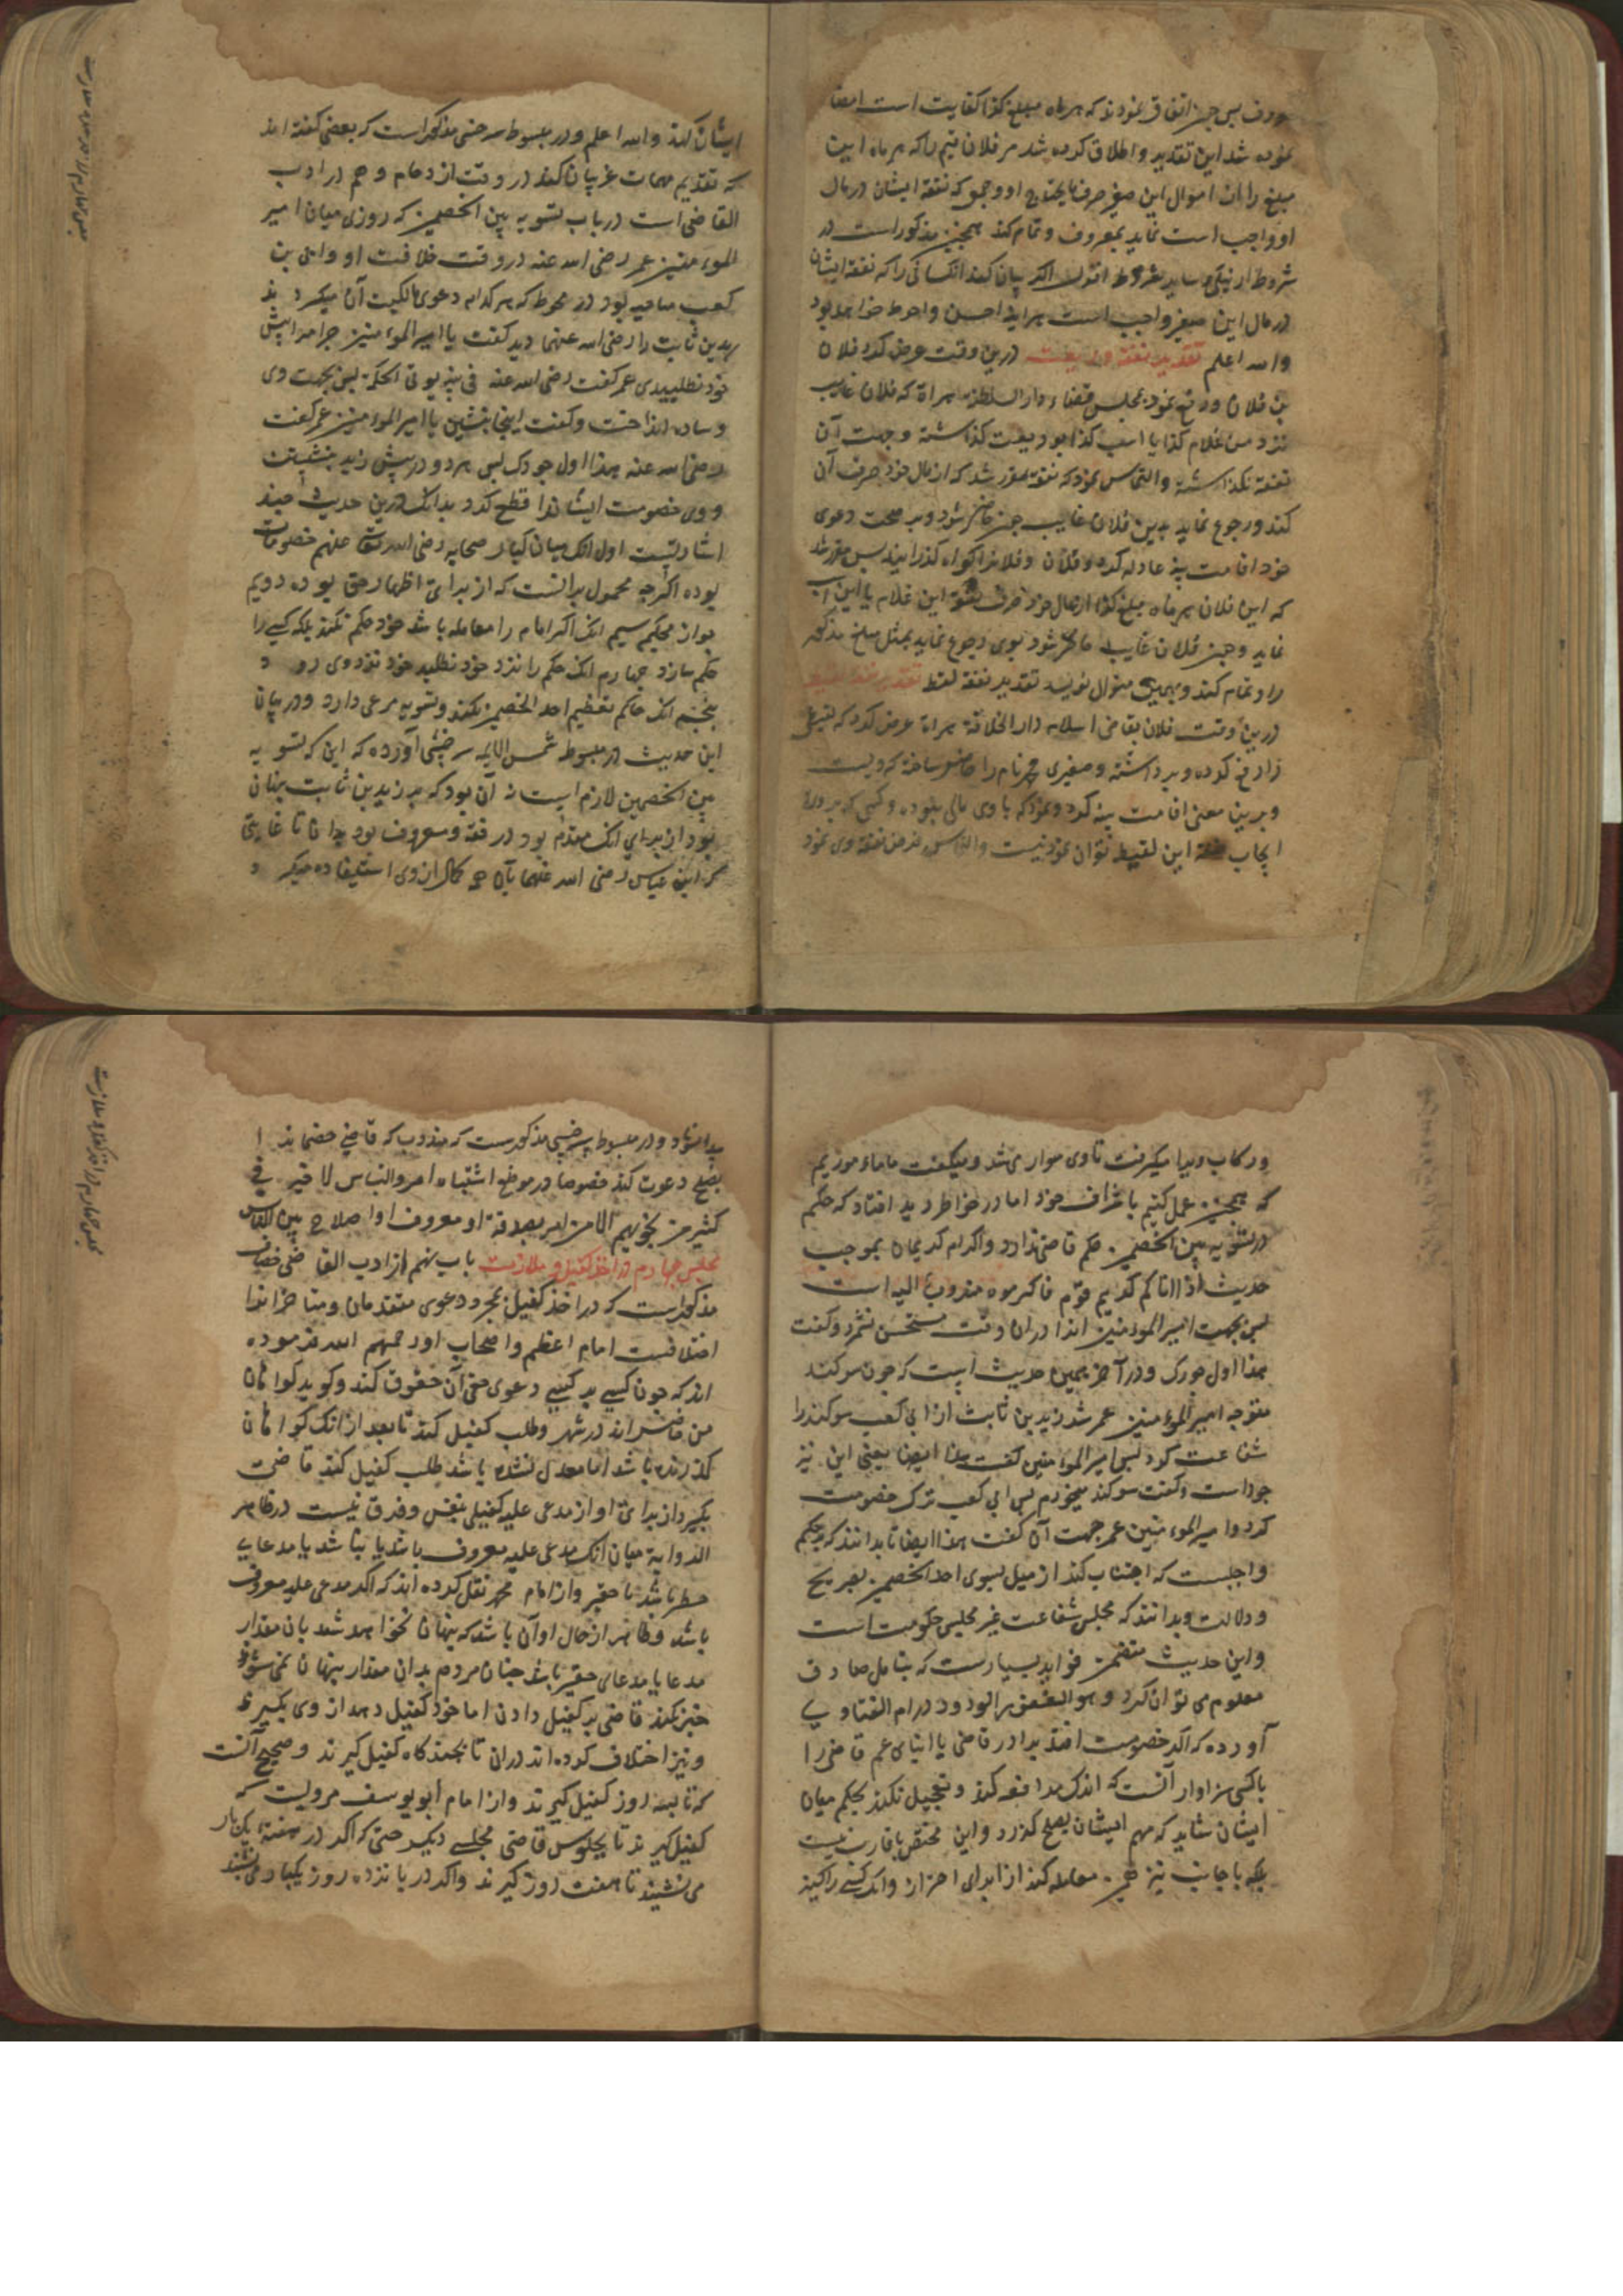 ورف پس چون اتفاق نمودند که هر ماه مبلغ کذا کفایت است امضا
نموده شد این تقدیر و اطلاق کرده شد مر فلان قیم را که هر ماه این
مبلغ را از اموال این صغیر صرف مایحتاج او و جمعی که نفقه ایشان در مال
او واجب است نماید بمعروف و تمام کند همچنین مذکور است در
شروط اقول اگر بیان کند آن کسانی را که نفقه ایشان
در مال این صغیر واجب است هر آینه احسن و احوط خواهد بود
والله اعلم تقدیر نفقه ودیعت درین وقت عرض کرد فلان
بن فلان و رفع نمود بمجلس قضاء دار السلطنه هراة که فلان غایب
نزد من غلام کذا یا اسب کذا بودیعت گذاشته و جهت آن
نفقه نگذاشته و التماس نمود که نفقه مقرر شد که از مال خود صرف آن
کند و رجوع نماید باین فلان غایب چون حاضر شود و بر صحت دعوی
خود اقامت بینه عادله کرد و فلان و فلان را گواه گذرانید پس مقرر شد
که این فلان هر ماه مبلغ کذا از مال خود صرف نفقه این غلام یا این اسب
نماید و چون فلان غایب حاضر شود بوی رجوع نماید بمثل مبلغ مذکور
را و تمام کند و بهمین منوال نویسد تقدیر نفقه لقط تقدیر نفقه لقیط
درین وقت فلان بقاضی اسلام دار الخلافة هراة عرض کرد که لقیطی
را رفع کرده و برداشته و صغیری نام را حاضر ساخته که ویست
و برین معنی اقامت بینه کرد و نمود که با وی مالی نبوده و کسی که بر وی
ایجاب نفقه این لقیط توان نمود نیست و التماس فرض نفقه وی نمود
ایشان کند والله اعلم و در مبسوط سرخسی مذکور است که بعضی گفته اند
که تقدیم مهمات غریبان کند در وقت ازدحام و هم در ادب
القاضی است در باب تسویه بین الخصمین که روزی میان امیر
المؤمنین عمر رضی الله عنه در وقت خلافت او و ابی بن
کعب مباحثه بود در که هر کدام دعوی مالکیت آن میکرد
زید بن ثابت را رضی الله عنهما دید گفت یا امیر المؤمنین چرا مرا پیش
خود نطلبیدی عمر گفت رضی الله عنه فی بیته یوتی الحکم پس بجهت وی
وساده انداخت و گفت اینجا بنشین یا امیر المؤمنین عمر گفت
رضی الله عنه هذا اول جورک پس هر دو در پیش زید بنشستند
و وی خصومت ایشان را قطع کرد بدانکه درین حدیث چند
اشارتست اول آنک میان کبار صحابه رضی الله تعالی عنهم خصومات
بوده اگرچه محمول بر آنست که از برای اظهار حق بوده دویم
جواز تحکیم سیم آنک اگر امام را معامله باشد خود حکم نکند بلکه کسی را
حکم سازد چهارم آنک حکم را نزد خود نطلبد خود نزد وی رود
پنجم آنک حاکم تعظیم احد الخصمین نکند و تسویه مرعی دارد و در بیان
این حدیث در مبسوط شمس الایمه سرخسی آورده که این که تسویه
بین الخصمین لازم است نه آن بود که بر زید بن ثابت پنهان
بود از برای آنک مقدم بود در فقه و معروف بود بدان تا غایتی
که ابن عباس رضی الله عنهما با آن کمال از وی استفاده میکرد
و رکاب ویرا میگرفت تا وی سوار می شد و میگفت ما مأموریم
که همچنین عمل کنیم باشراف خود اما در خاطر زید افتاد که حکم
در تسویه بین الخصمین حکم قاضی ندارد و اکرام کریمان بموجب
حدیث اذا اتاکم کریم قوم فاکرموه مندوب الیه است
پس بجهت امیر المؤمنین آنرا در آن وقت مستحسن شمرد و گفت
هذا اول جورک و در آخر همین حدیث است که چون سوکند
متوجه امیر المؤمنین عمر شد زید بن ثابت از ابی کعب سوکند را
شفاعت کرد پس امیر المؤمنین گفت هذا ایضا یعنی این نیز
جور است و گفت سوکند میخورم پس ابی کعب ترک خصومت
کرد و امیر المؤمنین عمر جهت آن گفت هذا ایضا تا بدانند که بر حکم
واجبست که اجتناب کند از میل بسوی احد الخصمین بصریح
و دلالت و بدانند که مجلس شفاعت غیر مجلس حکومت است
و این حدیث متضمن فواید بسیارست که بتأمل صادق
معلوم می توان کرد و هو الغفور الودود در ام الفتاوی
آورده که اگر خصومت افتد برادر قاضی یا ابنای عم قاضی را
با کسی سزاوار آنست که اندک مدافعه کند و تعجیل نکند بحکم میان
ایشان شاید که مهم ایشان بصلح گذرد و این مختص باقارب نیست
بلکه با اجانب نیز معامله کند از برای احتراز و آنک کسی را کینه
بدانشود و در مبسوط سرخسی مذکورست که مندوب که قاضی خصمان را
بصلح دعوت کند خصوصا در موضع اشتباه امر والناس لا خیر فی
کثیر من نجویهم الا من امر بصدقة او معروف او اصلاح بین الناس
مجلس چهارم در اخذ کفیل و ملازمت باب نهم از ادب القاضی خصاف
مذکور است که در اخذ کفیل بمجرد دعوی متقدمان و متاخران را
اختلافست امام اعظم و اصحاب او رحمهم الله فرموده
اند که چون کسی بر کسی دعوی حقی از حقوق کند و گوید گواهان
من حاضر اند در شهر و طلب کفیل کند تا بعد از آنک گواهان
گذرنده باشد اما معدل نشده باشد طلب کفیل کند قاضی
بگیرد از برای او از مدعی علیه کفیلی بنفس و فرق نیست در ظاهر
الروایة میان آنک مدعی علیه معروف باشد یا نباشد یا مدعا
خطیر باشد یا حقیر و از امام محمد نقل کرده اند که اگر مدعی علیه معروف
باشد و ظاهر از حال او آن باشد که پنهان نخواهد شد بآن مقدار
مدعا یا مدعای حقیر باشد چنان مردم بدان مقدار پنهان نمی شود
جبر نکند قاضی بر کفیل دادن اما خود کفیل دهد از وی بگیرد
و نیز اختلاف کرده اند در آن تا بچند گاه کفیل گیرند و صحیح آنست
که تا بسه روز کفیل گیرند و از امام ابو یوسف مرویست که
کفیل گیرند تا بجلوس قاضی مجلسی دیگر حتی که اگر در هفته یکبار
می نشیند تا هفت روز گیرند و اگر در پانزده روز یکبار می نشیند